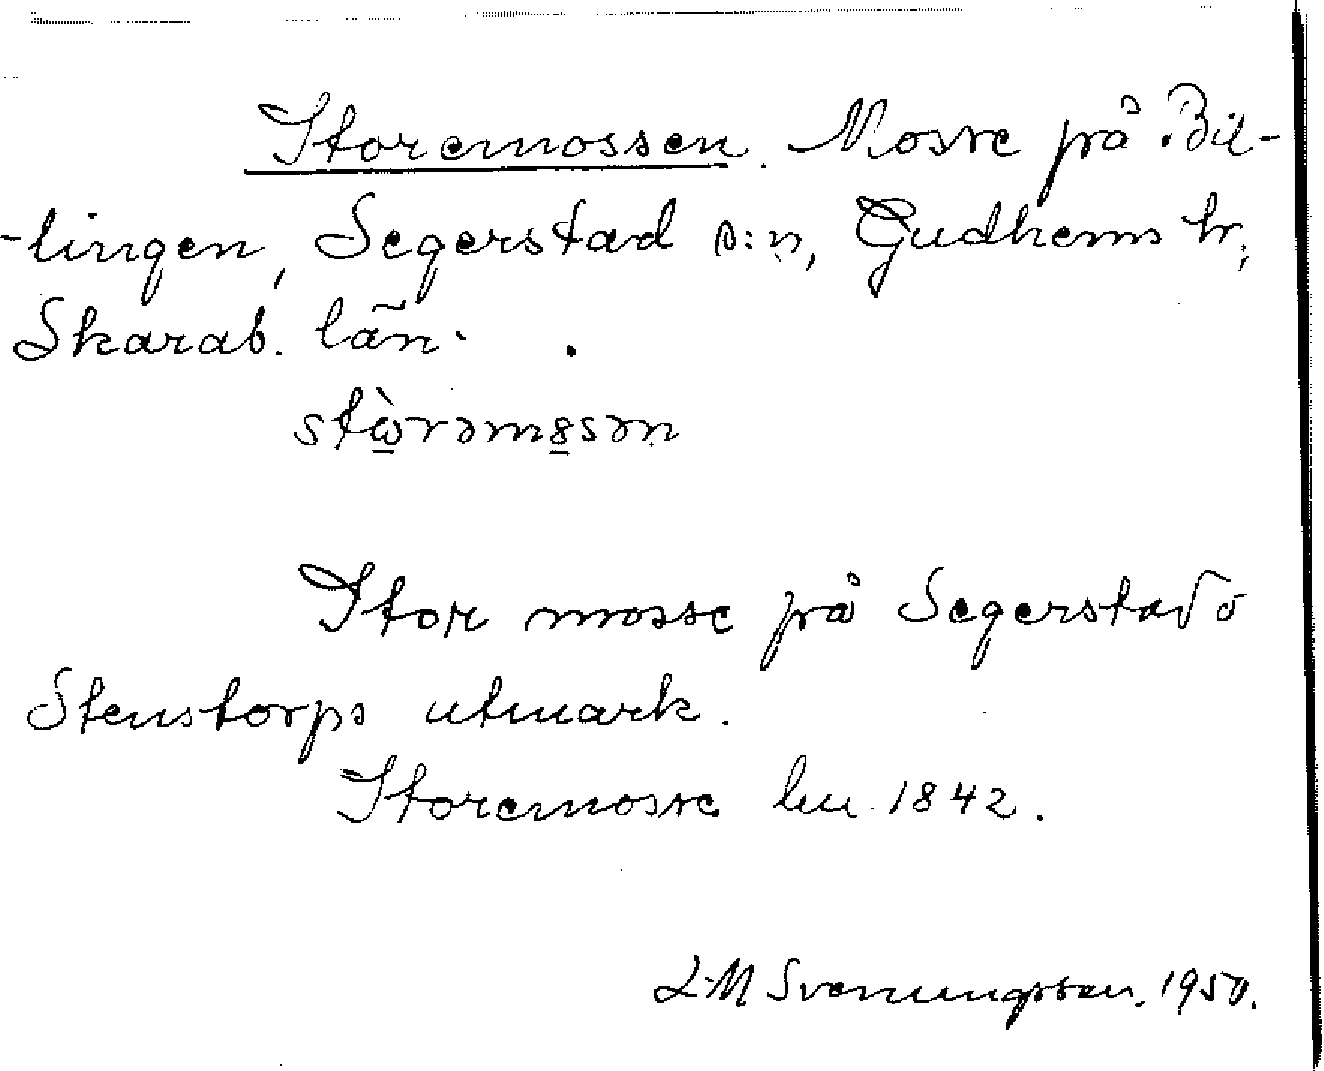 Storemossen. Mosse på Bil-
-lingen, Segerstad s:n, Gudhems hr,
Skarab. län.
stὼrəm8sən
Stor mosse på Segerstad o
Stenstorps utmark.
Storemosse lm 1842.
L-M Svenungsson. 1950.